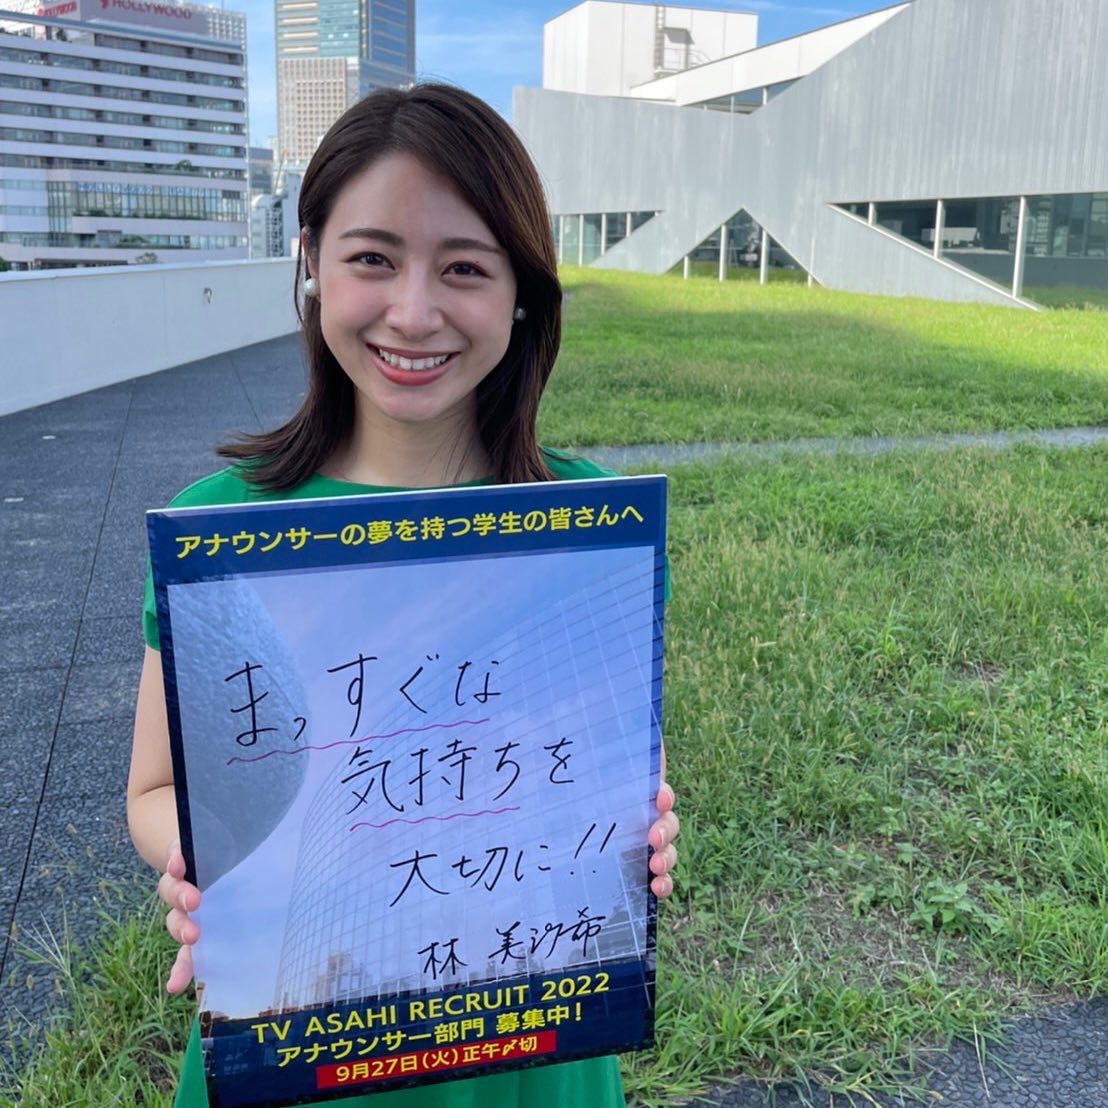 HOLLYWOOD
アナウンサーの夢を持つ学生の皆さんへ
まっすぐな
気持ちを
大切に!!
林 美沙希
TV ASAHI RECRUIT 2022
アナウンサー部門 募集中!
9月27日(火)正午〆切